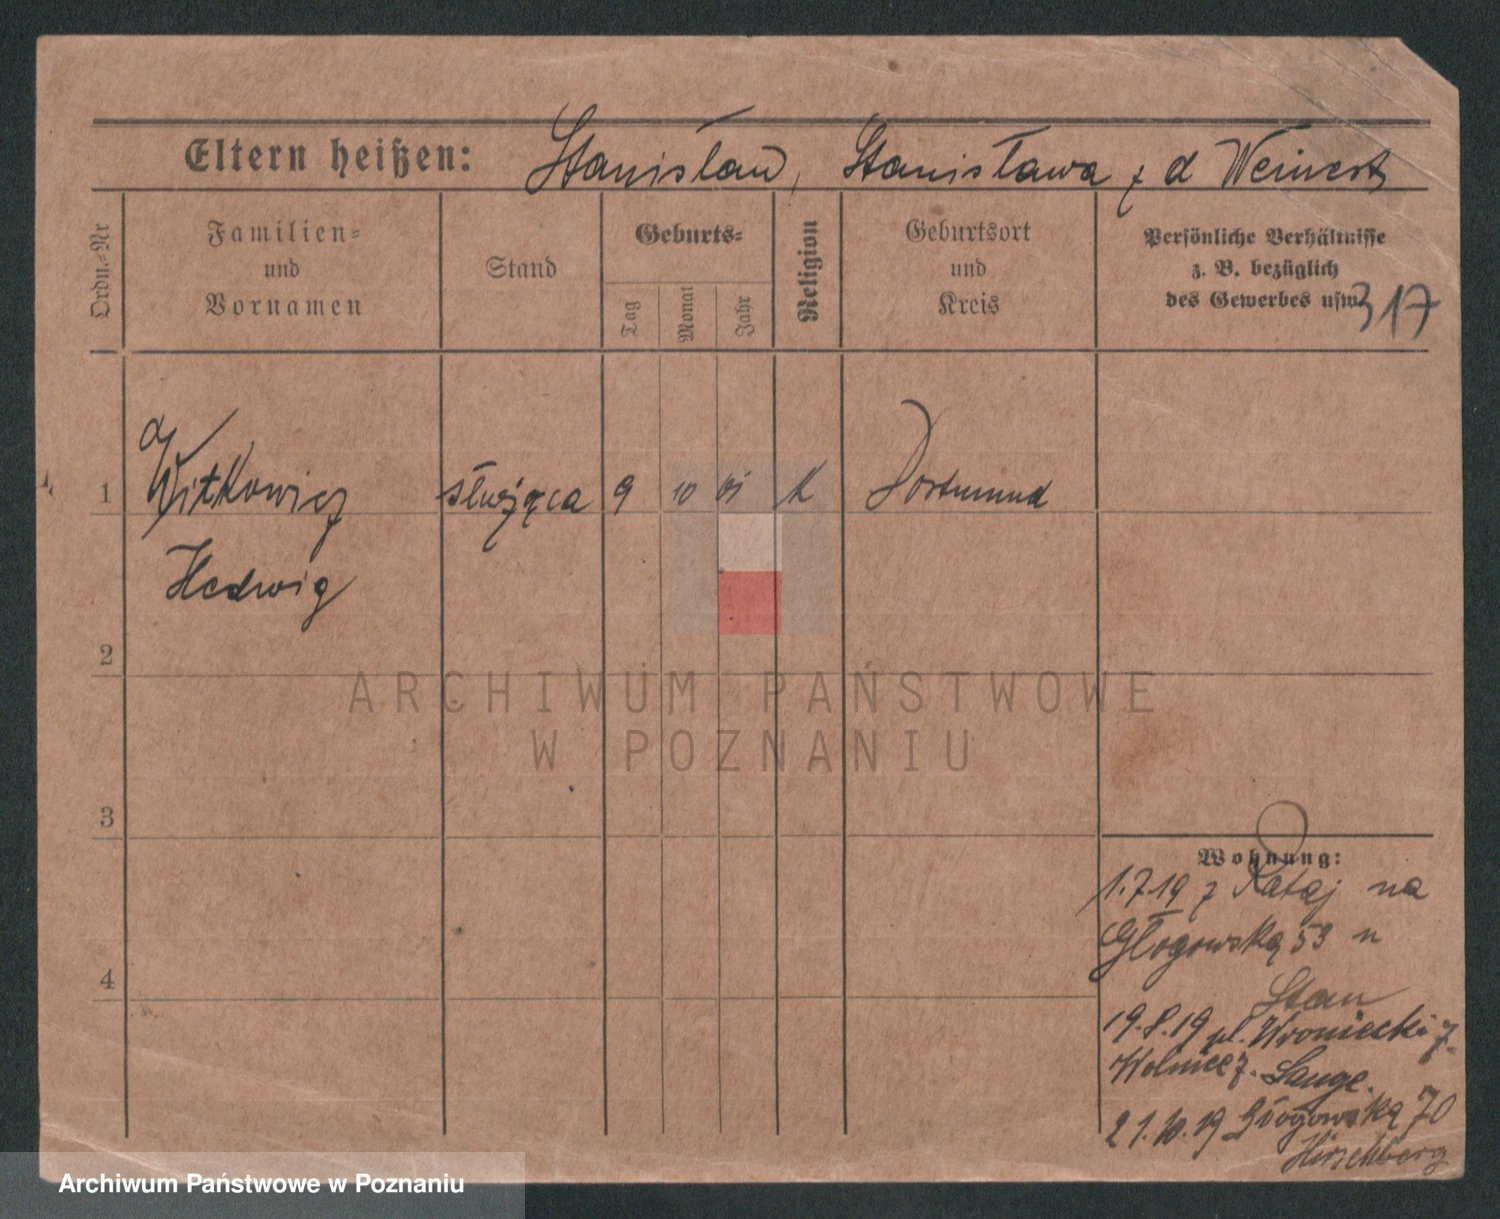 Eltern heißen: Stanisław, Stanisława z d Weinert
Ordn.-Nr
Familien-
und
Vornamen
Stand
Geburts-
Tag
Monat
Jahr
Religion
Geburtsort
und
Kreis
Persönliche Verhältnisse
z. B. bezüglich
des Gewerbes usw.
317
1 Witkowicz służąca 9 10 01 k Dortmund
Hedwig
2
3
4
Wohnung:
1.7.19 z Rataj na
Głogowską 53 u
Stan
19.8.19 pl. Wroniecki 7.
Lange.
21.10.19 Głogowska 70
Hirschberg
ARCHIWUM PAŃSTWOWE
W POZNANIU
Archiwum Państwowe w Poznaniu